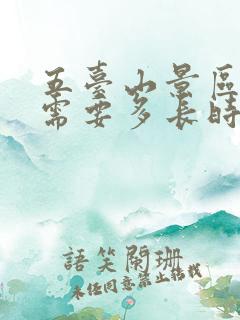 五臺山景區
需要多長時
語笑闌珊
未經同意禁止轉載